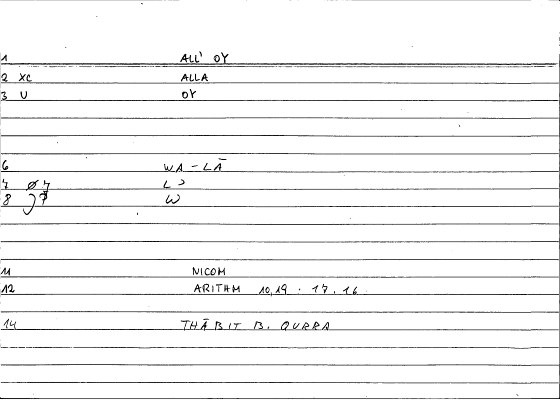 1 ALL' OY
2 XC ALLA
3 U OY
6 WA-LĀ
7 Ø 7 L
8 W
11 NICOM
12 ARITHM 10,19 · 17,16
14 THĀBIT B. QURRA